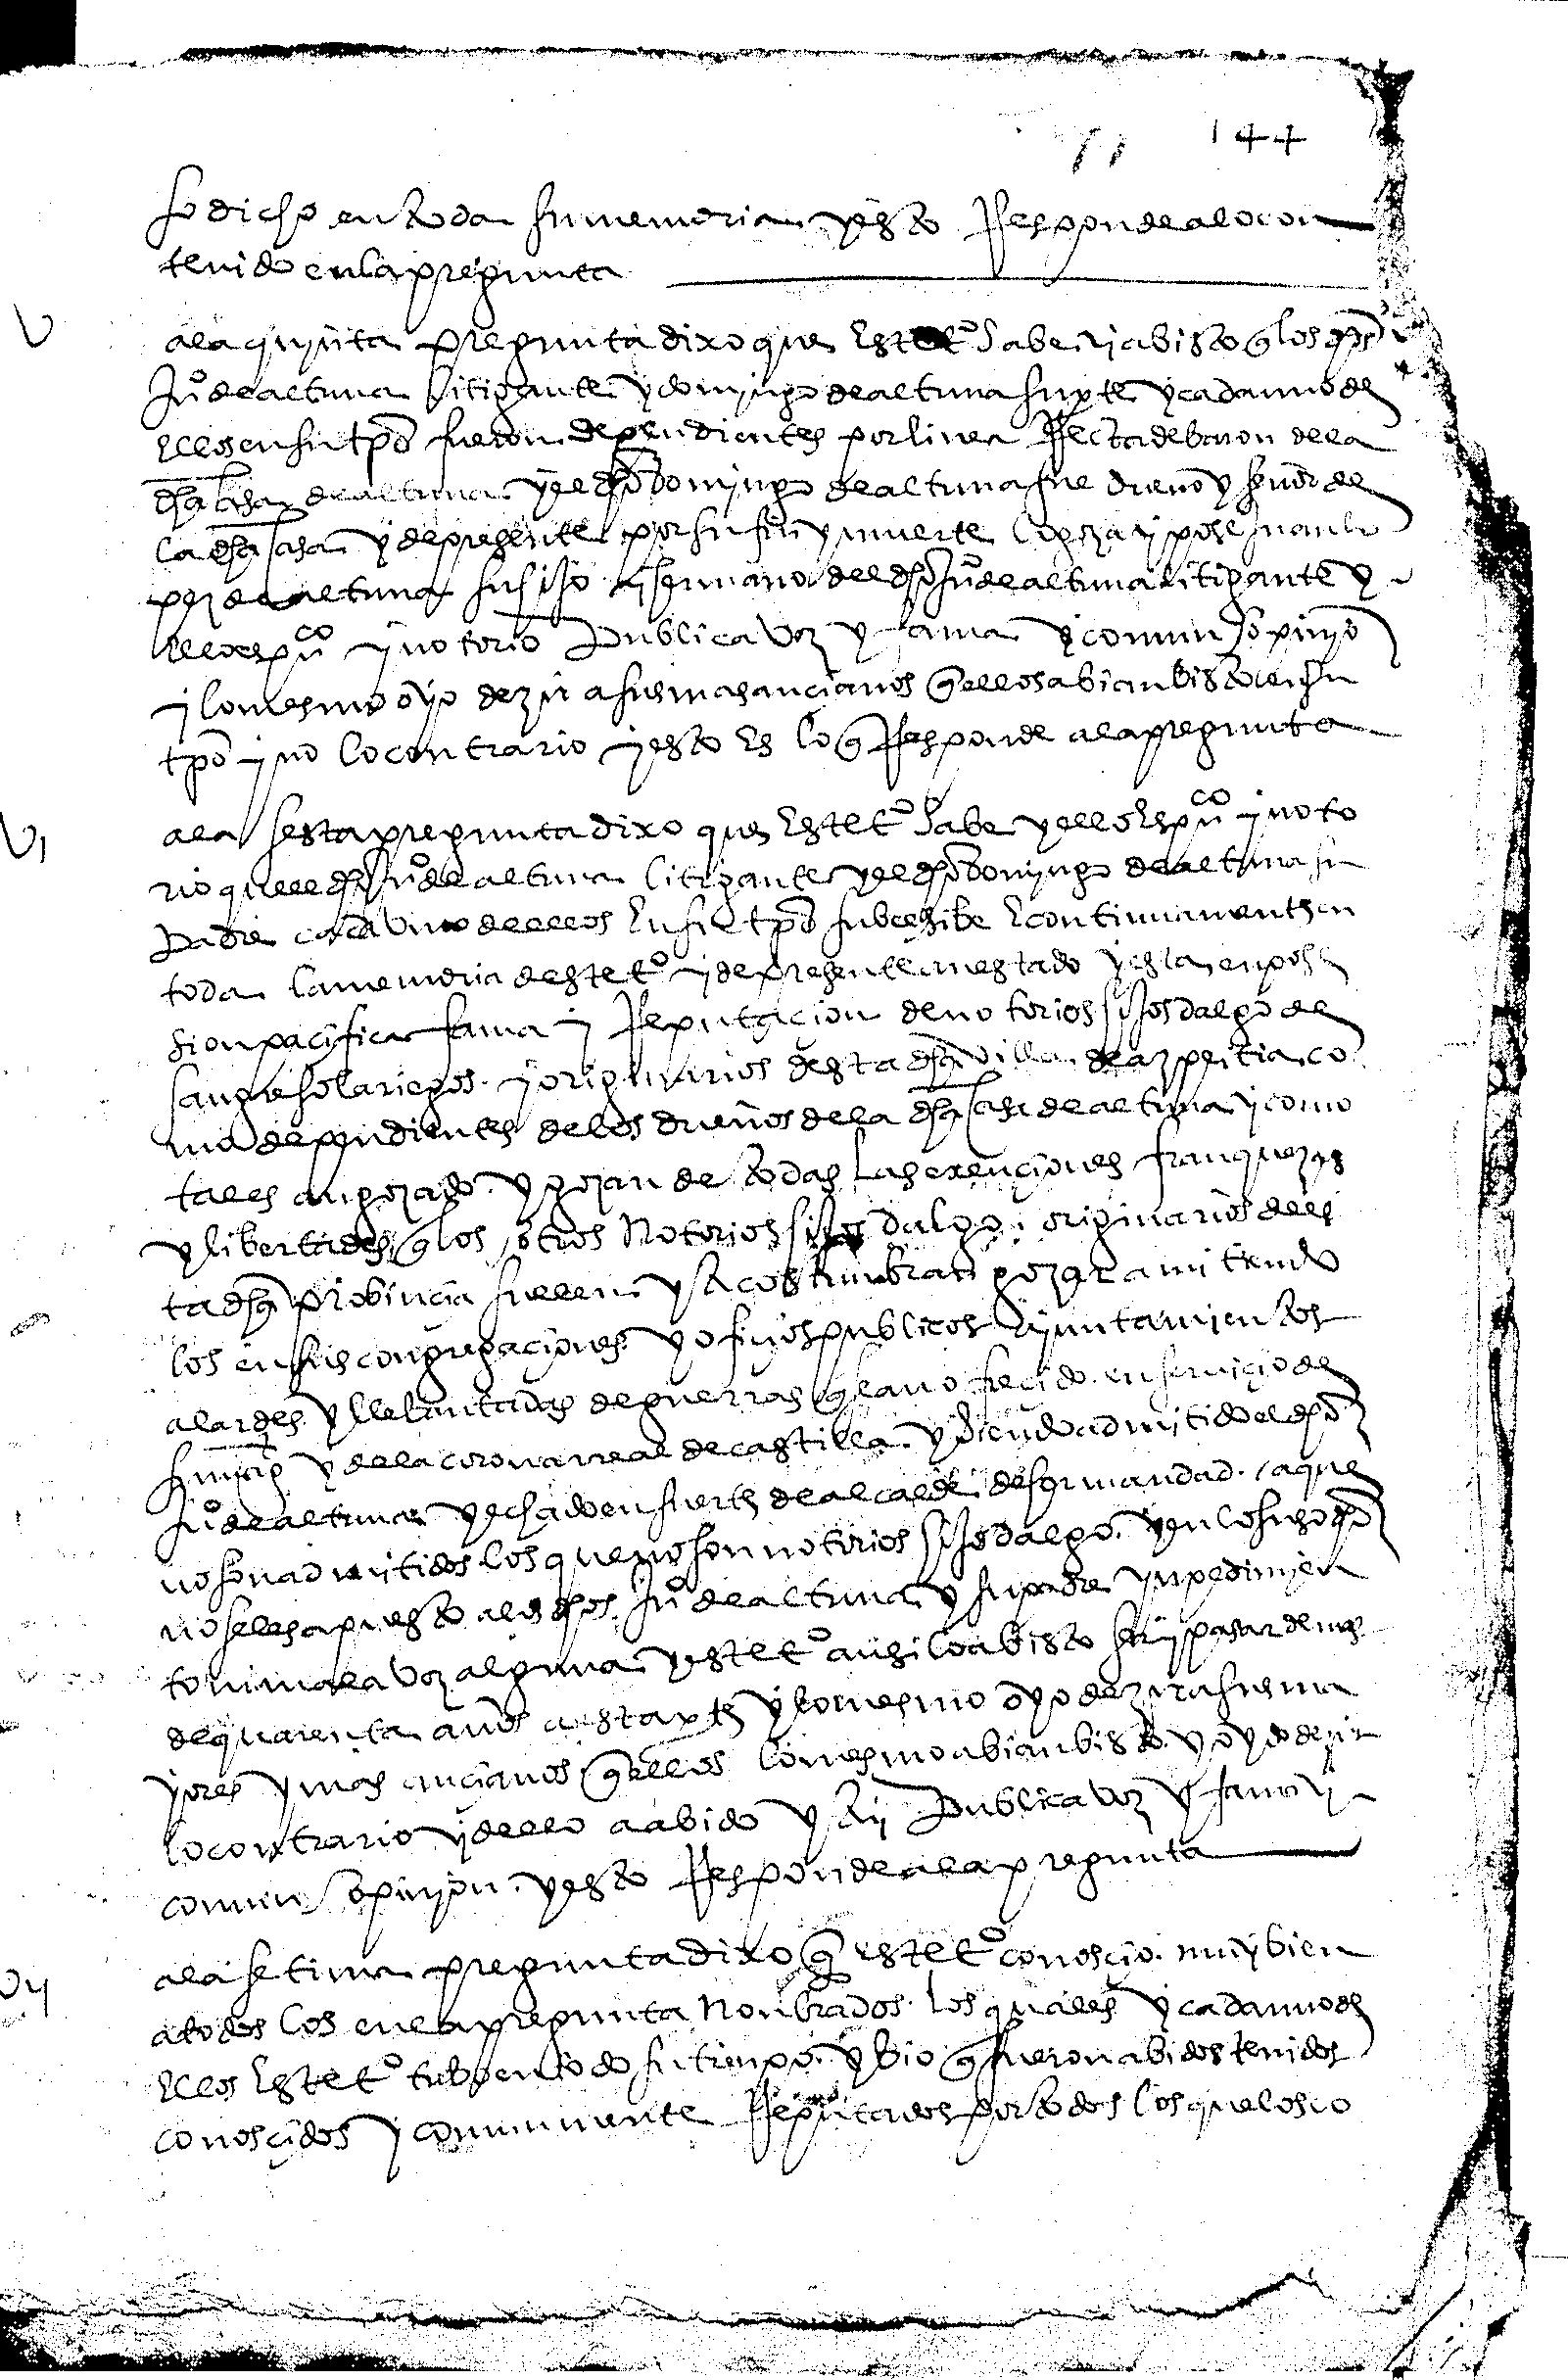 144
so dicho en toda su memoria y esto responde a lo con
tenido en la pregunta
V
a la quinta pregunta dixo que este tº sabe y a bisto q los dhos
Juº de altuna litigante y domingo de altuna su pe y cada uno de
ellos en su tpo fueron dependientes por linea recta de baron de la
dha casa de altuna y el dho domingo de altuna fue dueño y señor de
la dha casa y de presente por su fin y muerte la goza y posee Juan lo
pez de altuna su hijo y hermano del dho Juº de altuna litigante y
ello es puco y notorio publica voz y fama y comun opinyo
y lo mesmo oyo dezir a sus mas ancianos q ellos abian bisto en su
tpo y no lo contrario y esto es lo q responde a la pregunta
VI
a la sesta pregunta dixo que este tº sabe y ello es puco y noto
rio que el dho Juº de altuna litigante y el dho domingo de altuna su
padre cada uno dellos en su tpo subcesibe e continuamente en
toda la memoria deste tº y de presente an estado y estan en pose
sion pacifica fama y reputaçion de notorios hijosdalgo de
sangre solariegos y originarios desta dha villa de azpeitia co
mo dependientes de los dueños de la dha casa de altuna y como
tales an gozado y gozan de todas las exençiones franquezas
y libertades q los otros notorios hijos dalgo originarios des
ta dha probincia suelen y acostunbran gozar amitiendo
los en sus congregaçiones y ofiçios publicos ayuntamientos
alardes y llebantadas de guerras q se an ofreçido en serviçio de
su mag y de la corona real de castilla y siendo admitido el dho
Juº de altuna y echado en suerte de alcalde de hermandad a que
no son admitidos los que no son notorios hijosdalgo y en lo suso dho
no se les a puesto a los dhos Juº de altuna y su padre ynpedimien
to ni mala voz alguna y este tº ansi lo a bisto ser y pasar de mas
de quarenta años a esta pte y lo mesmo oyo dezir a sus ma
yores y mas ancianos q ellos lo mesmo abian bisto y oydo dezir
lo contrario y dello a abido y ay publica voz y fama y
comun opinyon y esto responde a la pregunta
VII
a la setima pregunta dixo q este tº conosçio muy bien
a todos los en la pregunta nonbrados los quales y cada uno de
ellos este tº tubo en todo su tienpo y bio q fueron abidos tenidos
conosçidos y comunmente reputados por todos los que los co